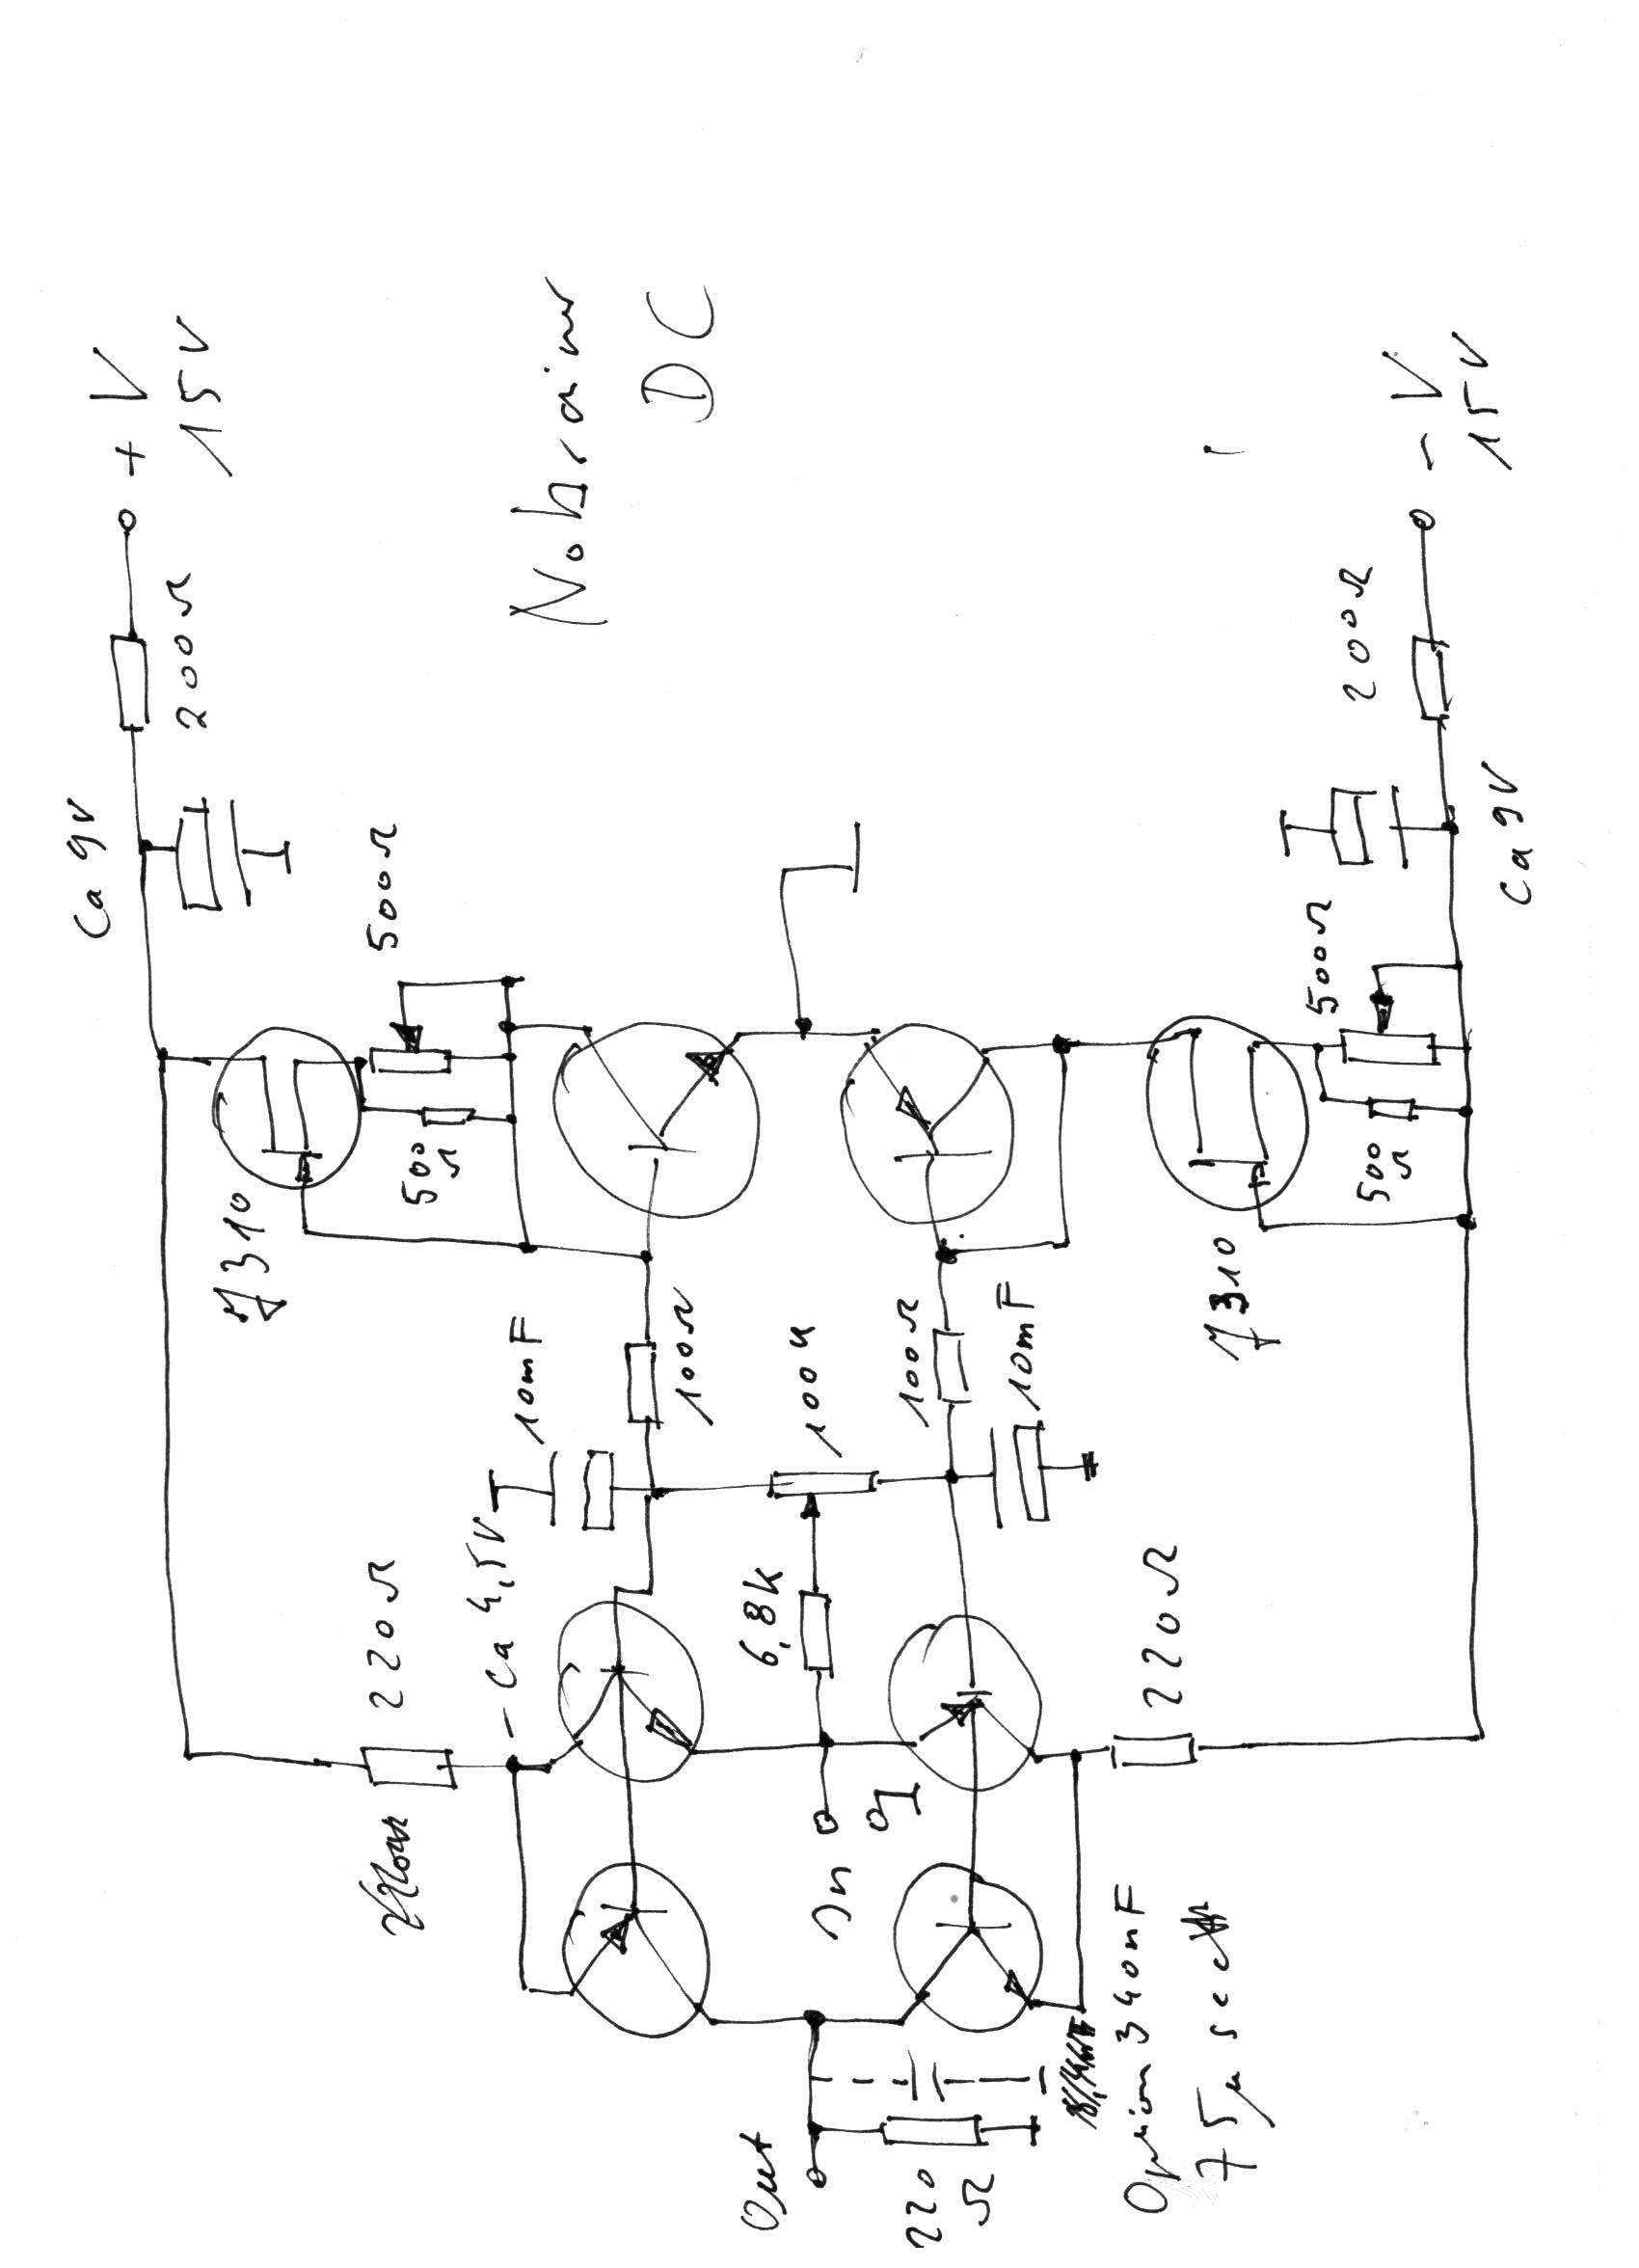 + V
15V
Ca 9V
200Ω
500Ω
J310
500
Ω
Nobrainer
DC
10mF
100Ω
220Ω
- Ca 4,5V
6,8k
100k
100Ω
10mF
J310
500
Ω
500Ω
200Ω
- V
15V
Ca 9V
220Ω
In
Out
220
Ω
Option 340nF
75µsec